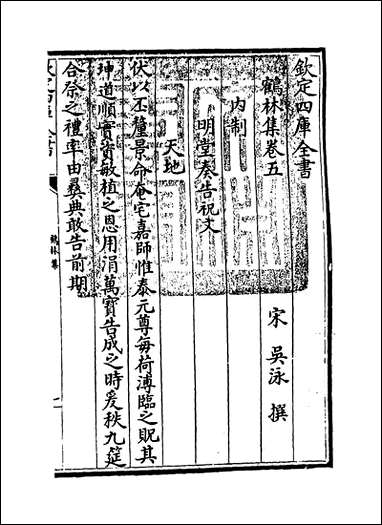 欽定四庫全書
鶴林集卷五
宋 吳泳 撰
內制
明堂奏告祝文
天地
伏以丕釐景命奄宅嘉師惟泰元尊每荷溥臨之貺其
珅道順實資敏植之恩用涓萬寶告成之時爰秩九筵
合祭之禮率由彞典敢告前期
欽定四庫全書
鶴林集
一